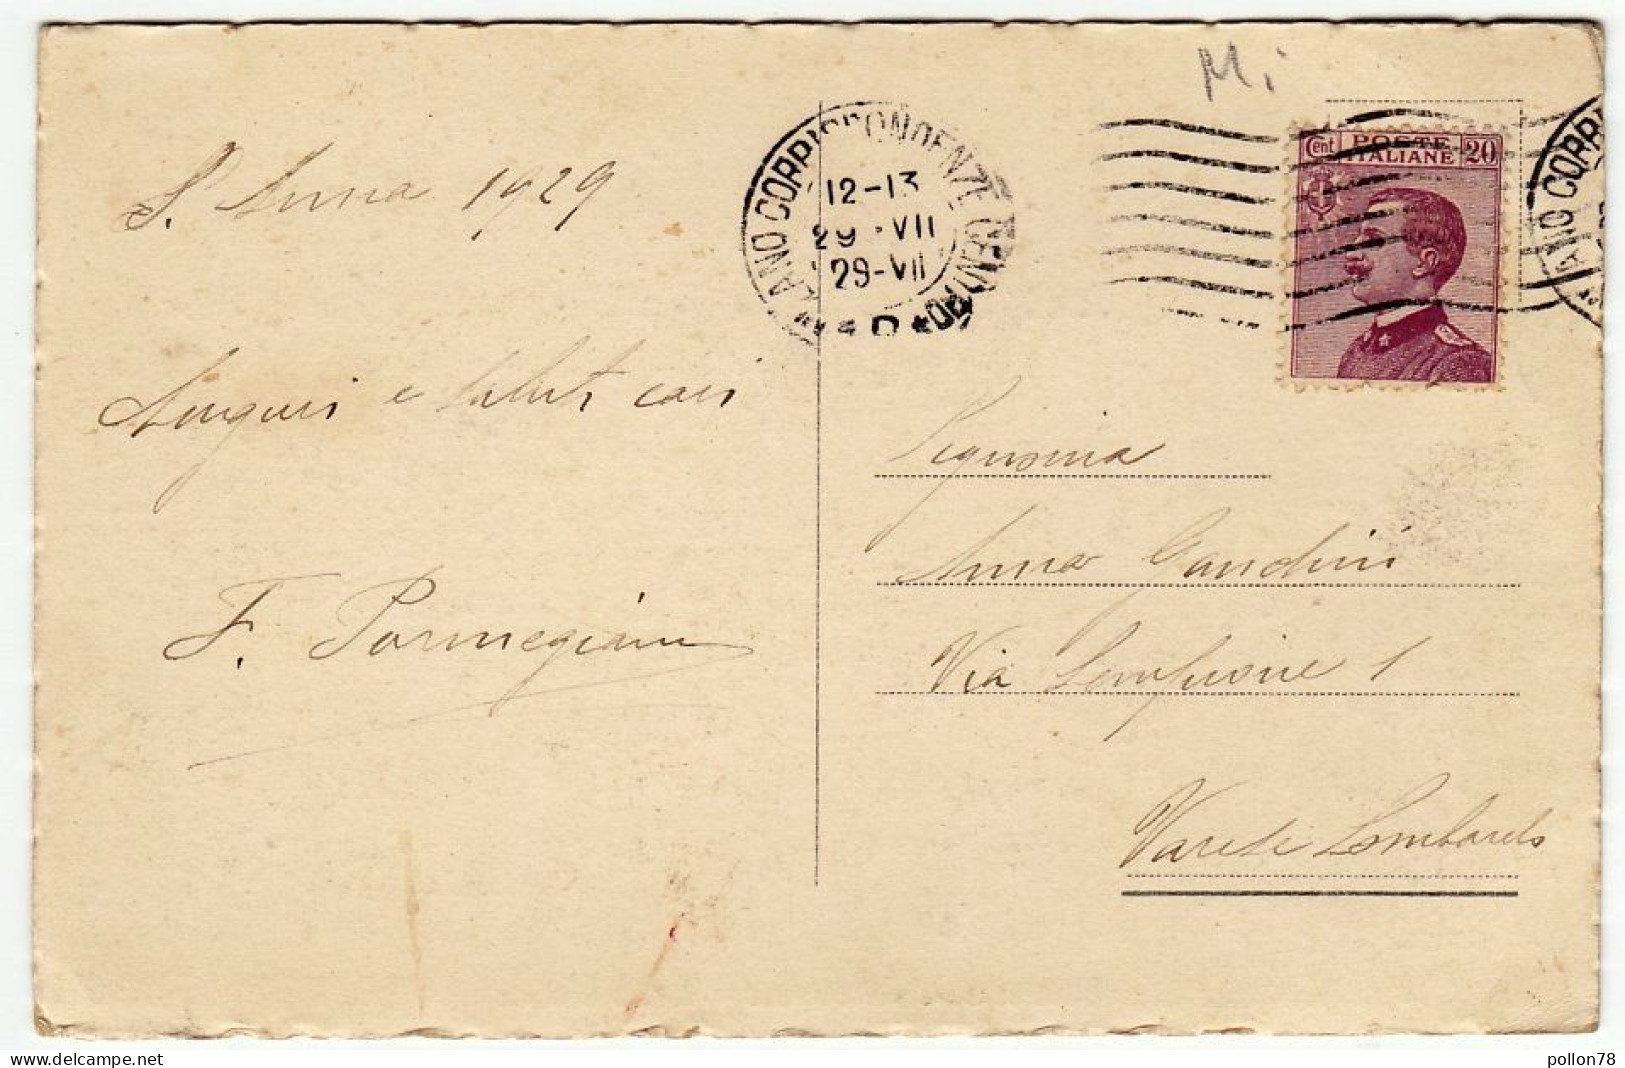 Mi
S. Anna 1929
MILANO CORRISPONDENZE CENTRO
12-13
29·VII
29-VII
Cent POSTE ITALIANE 20
ANO CORRI
Auguri e saluti cari
F. Parmegiani
Signorina
Anna Gandini
Via Sempione 1
Varese Lombardo
pollon78